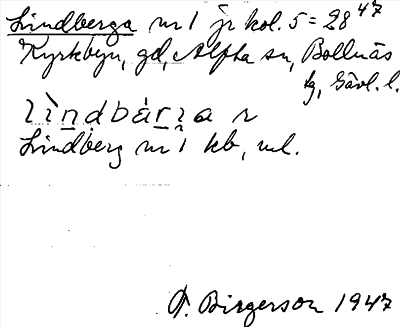 Lindberga nr 1 jr kol. 5 = 28 47
Kyrkbyn, gd, Alfta sn, Bollnäs
tg, Gävl. l.
lìndbárɪa r
Lindberg nr 1 kb, ml.
F. Birgerson 1947